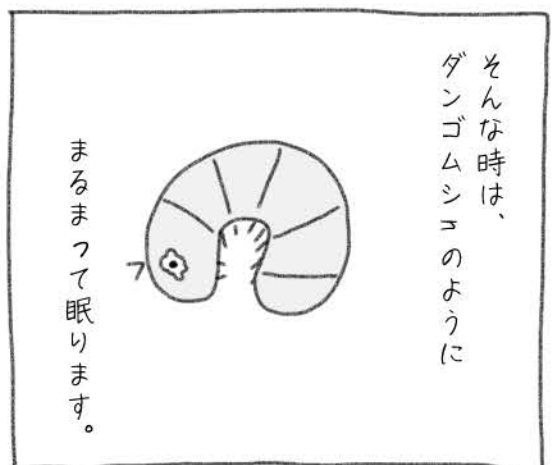 そんな時は、
ダンゴムシコのように
まるまって眠ります。